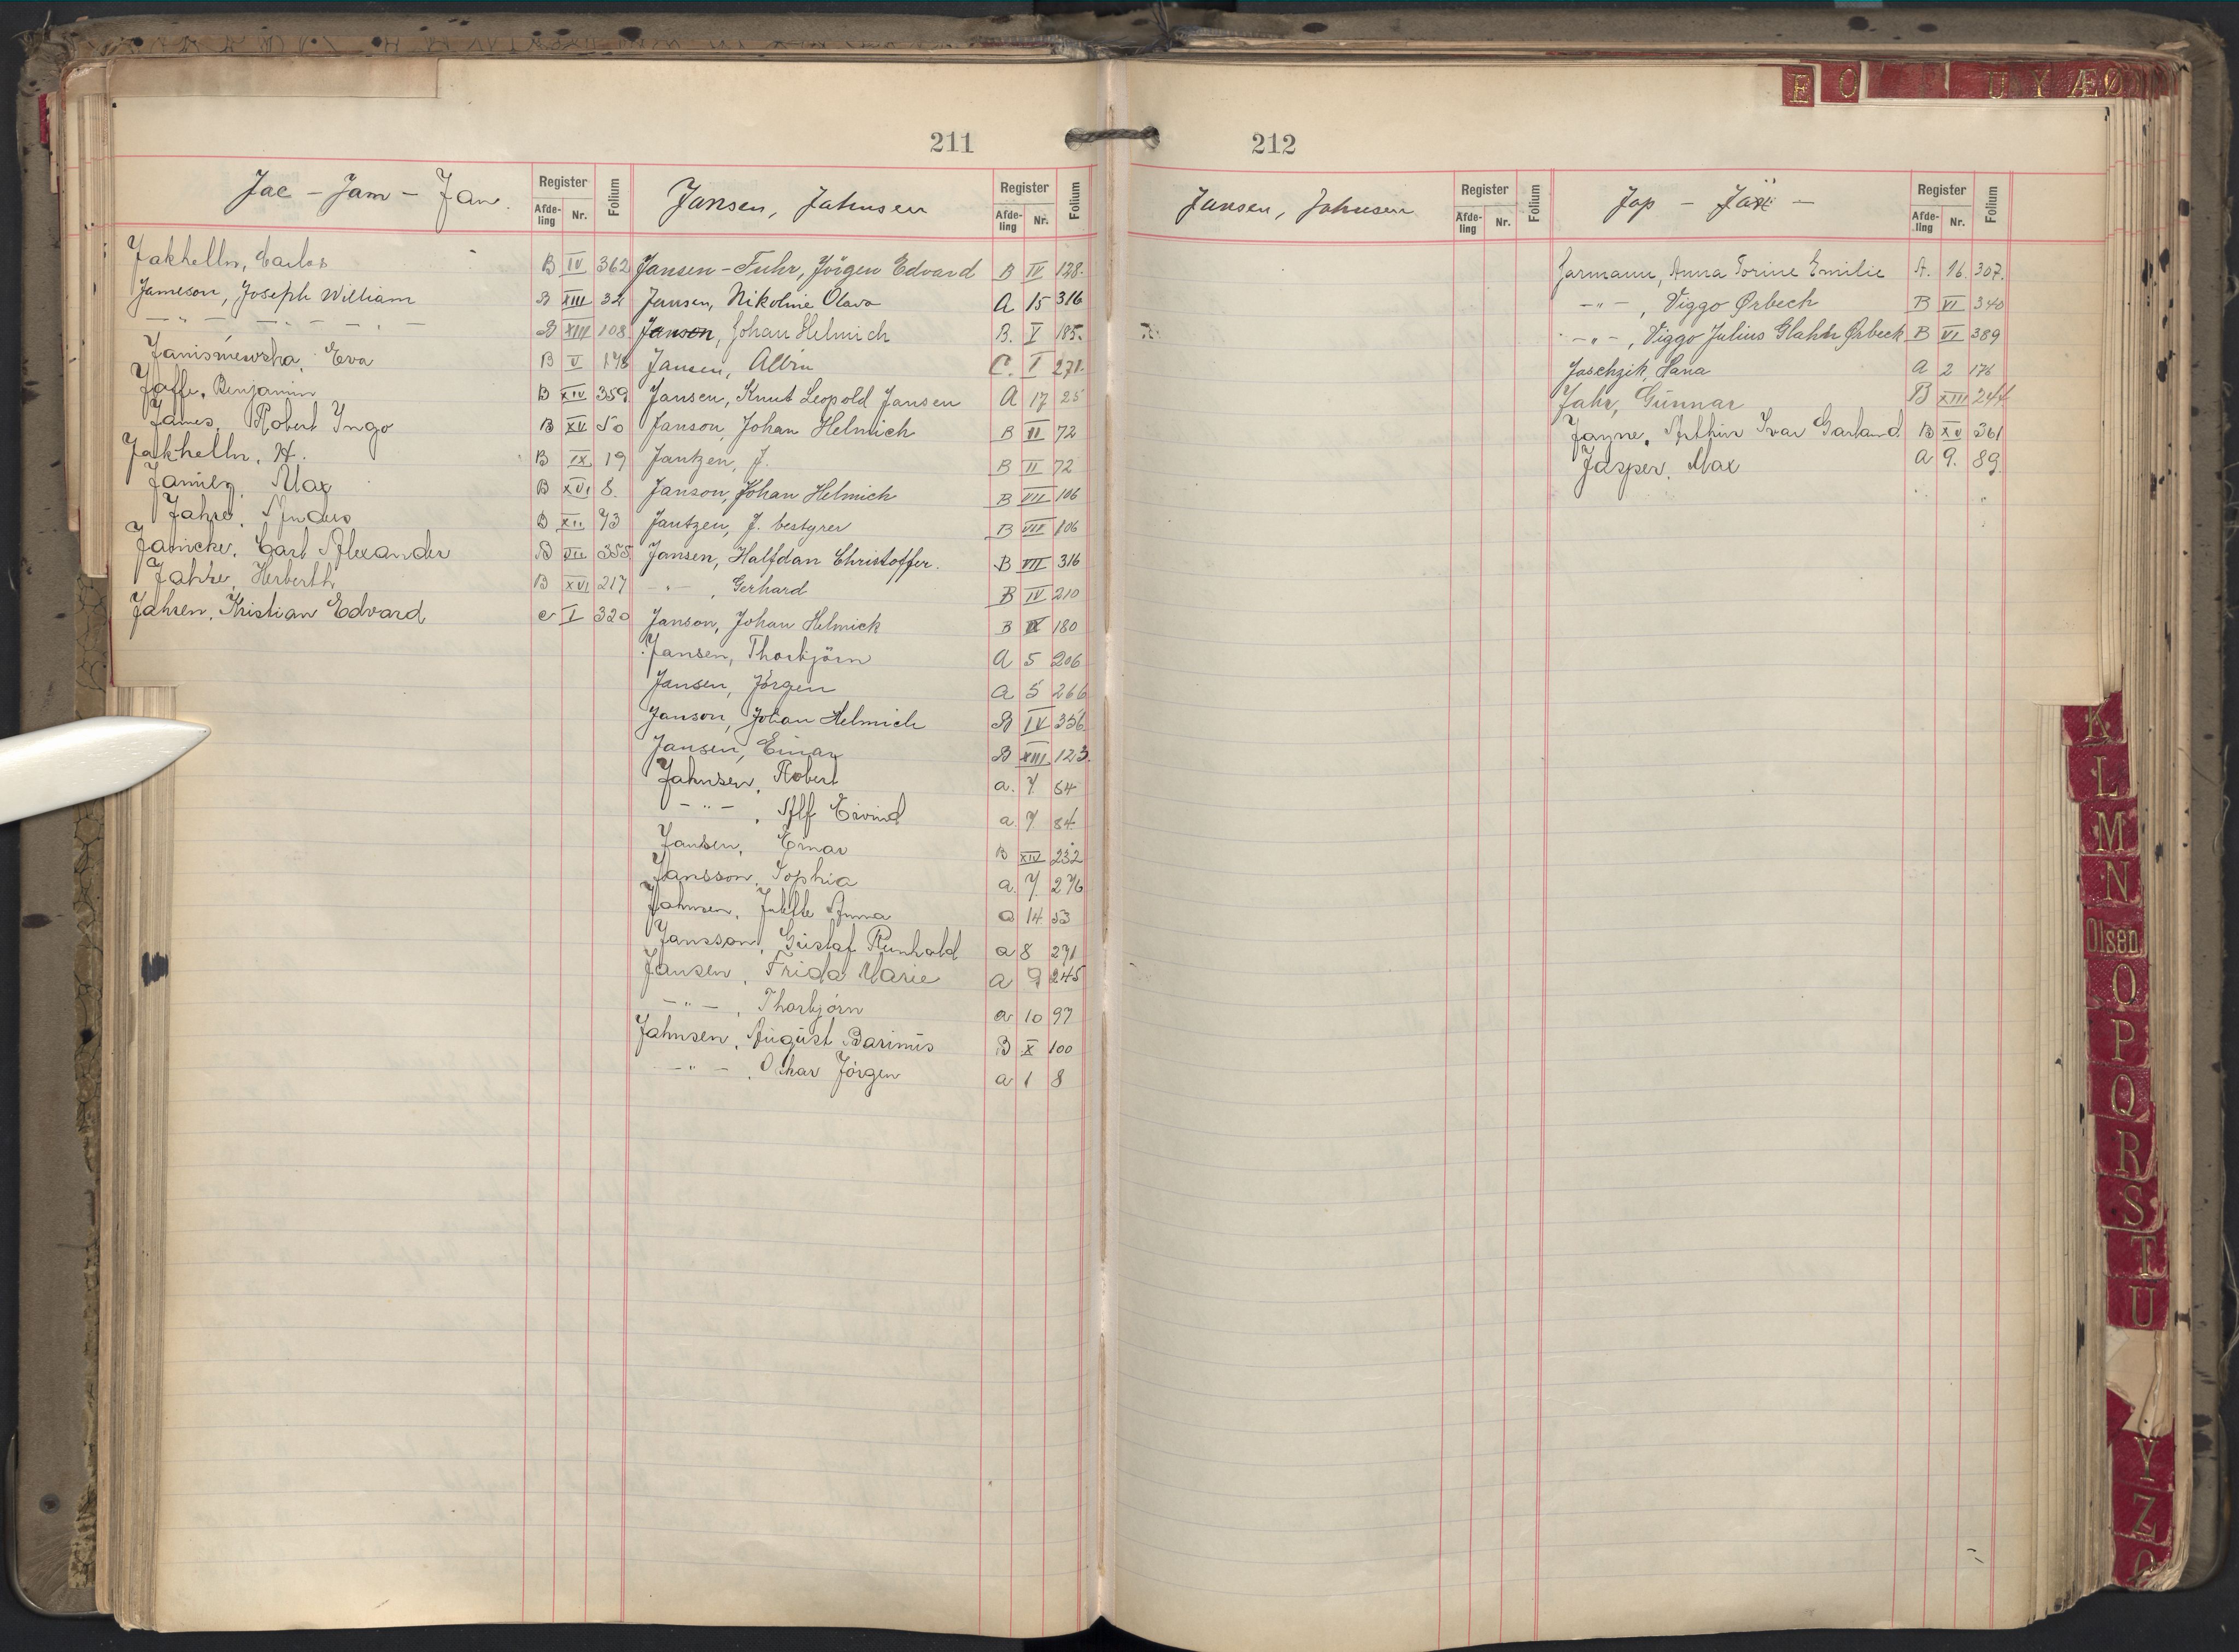 211
Jac - Jam - Jan.
Register
Afde-
ling
Nr.
Folium
Jakhelln, Carlos B IV 362
Jameson, Joseph William B XIII 32
- " - - " - - " - B XIII 108
Janisniewska, Eva B V 178
Jaffe, Benjamin B XIV 359
James, Robert Ingo B XV 50
Jakhelln, H. B IX 19
Max B XVI 8.
Jahre, Anders B XII 73
Janicke, Carl Alexander B VII 355
Jahke, Herberth B XVI 217
Jahren, Kristian Edvard C I 320
Jansen, Jahnsen
Register
Afde-
ling
Nr.
Folium
Jansen-Fuhr, Jörgen Edvard B IV 128.
Jansen, Nikoline Olava A 15 316
Janson, Johan Helmich B. V 185.
Jansen, Albin C. I 271.
Jansen, Knut Leopold Jansen A 17 25
Janson, Johan Helmich B II 72
Jantzen, J. B II 72
Janson, Johan Helmich B VII 106
Jantzen, J. bestyrer B VII 106
Jansen, Halfdan Christoffer. B VII 316
- " - , Gerhard B IV 210
Janson, Johan Helmick B IX 180
Jansen, Thorbjörn A 5 206
Jansen, Jörgen A 5 266
Janson, Johan Helmich B IV 356
Jansen, Einar B XIII 123.
Jahnsen, Robert a. 7. 54
- " - , Alf Eivind a 7 84
Jansen, Einar B XIV 232
Jansson, Sophia a. 7. 276
Jahnsen, Anna a 14 53
Jansson, Gustaf Reinhold a 8 291
Jansen, Frida Marie a 9 245
- " - , Thorbjörn a 10 97
Jahnsen, August Darimus B X 100
- " - , Oskar Jörgen a 1 8
212
Jansen, Johnsen
Register
Afde-
ling
Nr.
Folium
Jap - Jäx -
Register
Afde-
ling
Nr.
Folium
Jarmann, Anna Torine Emilie A. 16. 307.
- " - , Viggo Ørbech B VI 340
- " - , Viggo Julius Glahn Ørbeck B VI 389
Jaschzik, Hana A 2 176
Jahr, Gunnar B XIII 244
Jayne, Arthur Ivar Garland B XV 361
Jasper, Max a 9. 89.
E
O
U
Y
Æ
Ø
K
L
M
N
Olsen
O
P
Q
R
S
T
U
Y
Z